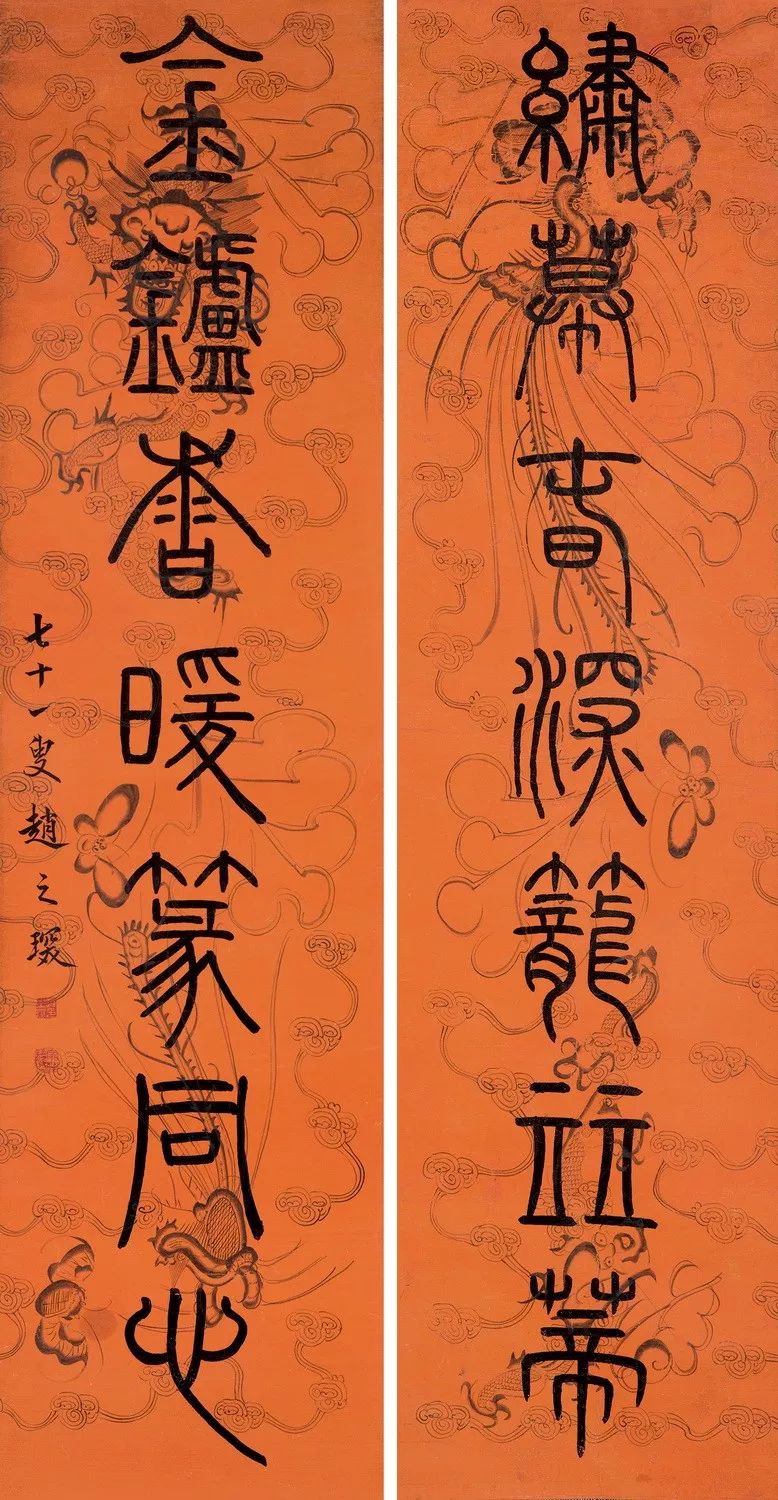 繡幕春深籠並蒂
金鑪香暖篆同心
七十一叟趙之琛